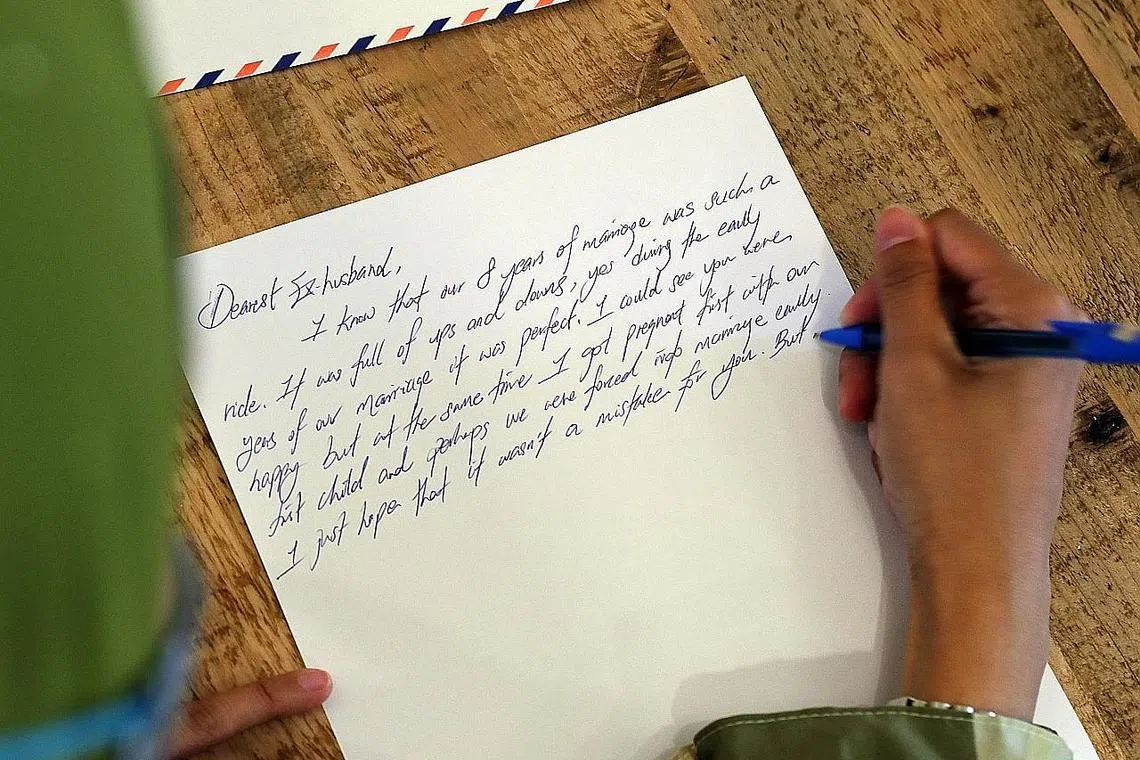 Dearest Ex-husband,
I know that our 8 years of marriage was such a
ride. It was full of ups and downs, yes during the early
years of our marriage it was perfect. I could see you were
happy but at the same time I got pregnant first with our
first child and perhaps we were forced into marriage early.
I just hope that it wasn't a mistake for you. But